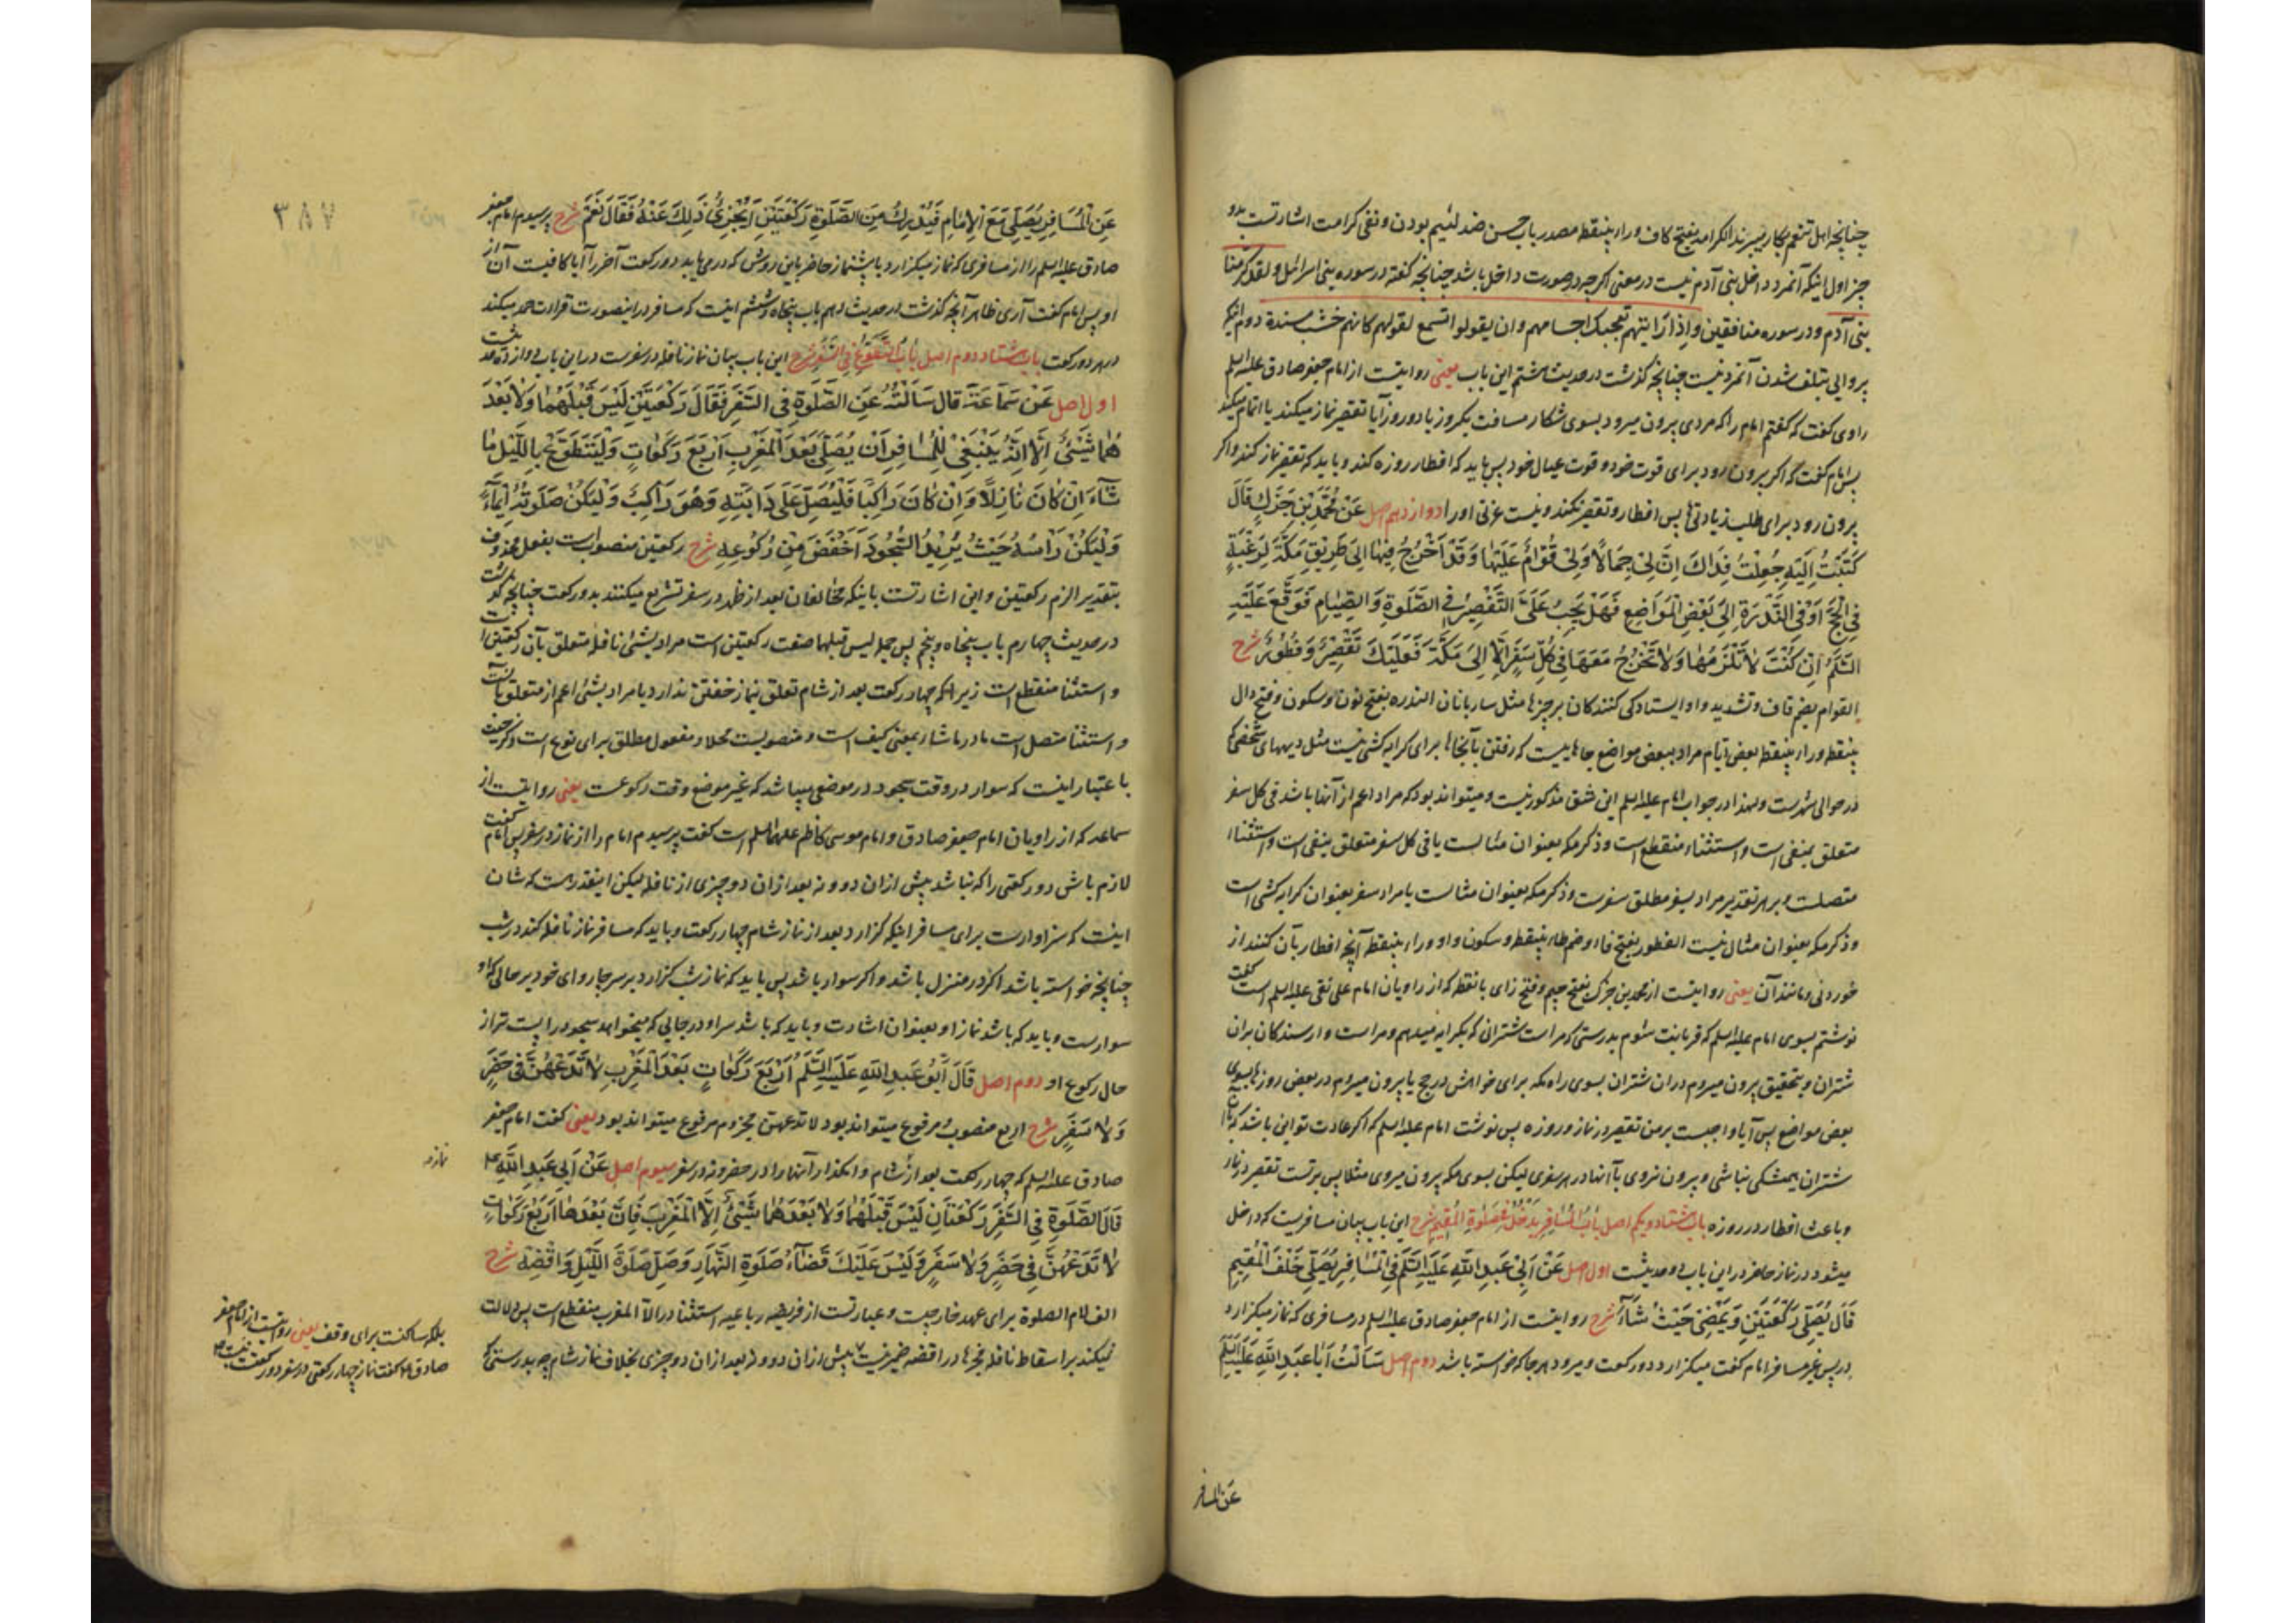 چنانچه اهل تنعم بکار میبرند الکرامه بفتح کاف و راء بینقطه مصدر باب حسن ضد لئیم بودن و نفی کرامت اشارتست بدو
چیز اول اینکه آنمرد داخل بنی آدم نیست در معنی اکرچه در صورت داخل باشد چنانچه کفته در سوره بنی اسرائیل و لقد کرمنا
بنی آدم و در سوره منافقین و اذا رایتهم تعجبک اجسامهم و ان یقولوا تسمع لقولهم کانهم خشب مسندة دوم اینکه
پروایی بتلف شدن آنمرد نیست چنانچه کذشت در حدیث هشتم این باب یعنی روایتست از امام جعفر صادق علیه السلم
راوی کفت که کفتم امام را که مردی بیرون میرود بسوی شکار مسافت یکروز یا دو روز آیا تقصیر نماز میکند یا اتمام میکند
پس امام کفت که اکر بیرون رود برای قوت خود و قوت عیال خود پس باید که افطار روزه کند و باید که تقصیر نماز کند و اکر
بیرون رود برای طلب زیادتیها پس افطار و تقصیر نکند و نیست عزتی او را دوازدهم اصل عَنْ مُحَمَّدِ بْنِ جَزَّكٍ قَالَ
كَتَبْتُ اِلَيْهِ جُعِلْتُ فِدَاكَ اِنَّ لِى جِمَالًا وَلِى قُوَّامٌ عَلَيْهَا وَقَدْ اَخْرُجُ فِيْهَا اِلَى طَرِيْقِ مَكَّةَ لِرَغْبَةٍ
فِى الْحَجِّ اَوْ فِى النَّدْرَةِ اِلَى بَعْضِ الْمَوَاضِعِ فَهَلْ يَجِبُ عَلَىَّ التَّقْصِيْرُ فِى الصَّلٰوةِ وَالصِّيَامِ فَوَقَّعَ عَلَيْهِ
السَّلَمُ اِنْ كُنْتَ لَا تَلْزَمُهَا وَلَا تَخْرُجُ مَعَهَا فِى كُلِّ سَفَرٍ اِلَّا اِلَى مَكَّةَ فَعَلَيْكَ تَقْصِيْرٌ وَفُطُوْرٌ شرح
القوام بضم قاف و تشدید واو ایستادکی کنندکان بر چیزها مثل ساربانان الندره بفتح نون و سکون و فتح دال
بینقطه و راء بینقطه بعض ایام مراد ببعض مواضع جاهاییست که رفتن بآنجاها برای کرایه کشی نیست مثل دیههای شخصی که
در حوالی شهرست و لهذا در جواب امام علیه السلم این شق مذکور نیست و میتواند بود که مراد اعم از آنها باشد فی کل سفر
متعلق بمنفی است و استثناء منقطع است و ذکر مکه بعنوان مثالست یا فی کل سفر متعلق بنفی است و استثناء
متصلست و بر هر تقدیر مراد بسفر مطلق سفرست و ذکر مکه بعنوان مثالست یا مراد سفر بعنوان کرایه کشی است
و ذکر مکه بعنوان مثال نیست الفطور بفتح فاء و ضم طاء بینقطه و سکون واو و راء بینقطه آنچه افطار بآن کنند از
خوردنی و مانند آن یعنی روایتست از محمد بن جزک بفتح جیم و فتح زای با نقطه که از راویان امام علی نقی علیه السلم است کفت
نوشتم بسوی امام علیه السلم که قربانت شوم بدرستی که مراست شترانی که بکرایه میدهم و مراست وارسندکان بران
شتران و بتحقیق بیرون میروم دران شتران بسوی راه مکه برای خواهش در حج یا بیرون میروم در بعض روزها بسوی
بعض مواضع پس آیا واجبست بر من تقصیر در نماز و روزه پس نوشت امام علیه السلم که اکر عادت تو این باشد که با آن
شتران همیشکی نباشی و بیرون نروی با آنها در هر سفری لیکن بسوی مکه بیرون میروی مثلا پس برتست تقصیر در نماز
و باعث افطار در روزه باب هشتاد و یکم اصل بَابُ الْمُسَافِرِ يَدْخُلُ فِى صَلٰوةِ الْمُقِيْمِ شرح این باب بیان مسافریست که داخل
میشود در نماز حاضر در این باب دو حدیثست اول اصل عَنْ اَبِىْ عَبْدِ اللّٰهِ عَلَيْهِ السَّلَمُ فِى الْمُسَافِرِ يُصَلِّى خَلْفَ الْمُقِيْمِ
قَالَ يُصَلِّى رَكْعَتَيْنِ وَيَمْضِىْ حَيْثُ شَاءَ شرح روایتست از امام جعفر صادق علیه السلم در مسافری که نماز میکزارد
در پس غیر مسافر امام کفت میکزارد دو رکعت و میرود هر جا که خواسته باشد دوم اصل سَاَلْتُ اَبَا عَبْدِ اللّٰهِ عَلَيْهِ السَّلَمُ
عن المسافر
۳۸۷
عَنِ الْمُسَافِرِ يُصَلِّىْ مَعَ الْاِمَامِ فَيُدْرِكُ مِنَ الصَّلٰوةِ رَكْعَتَيْنِ اَيُجْزِئُ ذٰلِكَ عَنْهُ فَقَالَ نَعَمْ شرح پرسیدم امام جعفر
صادق علیه السلم را از مسافری که نماز میکزارد با پیشنماز حاضر باین روش که در می یابد دو رکعت آخر را آیا کافیست آن از
او پس امام کفت آری ظاهر آنچه کذشت در حدیث دهم باب پنجاه و ششم اینست که مسافر در اینصورت قرائت حمد میکند
در هر دو رکعت باب هشتاد و دوم اصل بَابُ التَّطَوُّعِ فِى السَّفَرِ شرح این باب بیان نماز نافله در سفرست در این باب دوازده حدیثست
اول اصل عَنْ سَمَاعَةَ قَالَ سَاَلْتُهُ عَنِ الصَّلٰوةِ فِى السَّفَرِ فَقَالَ رَكْعَتَيْنِ لَيْسَ قَبْلَهُمَا وَلَا بَعْدَ
هُمَا شَيْئٌ اِلَّا اَنَّهُ يَنْبَغِىْ لِلْمُسَافِرِ اَنْ يُصَلِّىَ بَعْدَ الْمَغْرِبِ اَرْبَعَ رَكَعَاتٍ وَلْيَتَطَوَّعْ بِاللَّيْلِ مَا
شَاءَ اِنْ كَانَ نَازِلًا وَاِنْ كَانَ رَاكِبًا فَلْيُصَلِّ عَلَى دَابَّتِهِ وَهُوَ رَاكِبٌ وَلْيَكُنْ صَلٰوتُهُ اِيْمَاءً
وَلْيَكُنْ رَاْسُهُ حَيْثُ يُرِيْدُ السُّجُوْدَ اَخْفَضَ مِنْ رُكُوْعِهِ شرح رکعتین منصوبست بفعل محذوف
بتقدیر الزم رکعتین و این اشارتست باینکه مخالفان بعد از ظهر در سفر تشریع میکنند بدو رکعت چنانچه کذشت
در حدیث چهارم باب پنجاه و پنجم پس جمله لیس قبلهما صفت رکعتین است مراد بشیئ نافله متعلق بآن رکعتین است
و استثنا منقطع است زیرا که چهار رکعت بعد از شام تعلق بنماز خفتن ندارد یا مراد بشیئ اعم از متعلق بآنست
و استثنا متصل است ما در ما شاء بمعنی کیف است و منصوبست محلا و مفعول مطلق برای نوع است و ذکر حیث
باعتبار اینست که سوار در وقت سجود در موضعی میباشد که غیر موضع وقت رکوعست یعنی روایتست از
سماعه که از راویان امام جعفر صادق و امام موسی کاظم علیهما السلم است کفت پرسیدم امام را از نماز در سفر پس امام کفت
لازم باش دو رکعتی را که نباشد پیش ازان دو و نه بعد ازان دو چیزی از نافله لیکن اینقدر هست که شان
اینست که سزاوارست برای مسافر اینکه کزارد بعد از نماز شام چهار رکعت و باید که مسافر نماز نافله کند در شب
چنانچه خواسته باشد اکر در منزل باشد و اکر سوار باشد پس باید که نماز شب کزارد بر سر چارو ای خود بر حالی که او
سوارست و باید که باشد نماز او بعنوان اشارت و باید که باشد سر او در جایی که میخواهد سجود را پست تر از
حال رکوع او دوم اصل قَالَ اَبُوْ عَبْدِ اللّٰهِ عَلَيْهِ السَّلَمُ اَرْبَعَ رَكَعَاتٍ بَعْدَ الْمَغْرِبِ لَا تَدَعْهُنَّ فِى حَضَرٍ
وَلَا سَفَرٍ شرح اربع منصوب و مرفوع میتواند بود لا تدعهن مجزوم و مرفوع میتواند بود یعنی کفت امام جعفر
صادق علیه السلم که چهار رکعت بعد از شام وا مکذار آنها را در حضر و نه در سفر سیوم اصل عَنْ اَبِى عَبْدِ اللّٰهِ ع
قَالَ الصَّلٰوةُ فِى السَّفَرِ رَكْعَتَانِ لَيْسَ قَبْلَهُمَا وَلَا بَعْدَهُمَا شَيْئٌ اِلَّا الْمَغْرِبَ فَاِنَّ بَعْدَهَا اَرْبَعَ رَكَعَاتٍ
لَا تَدَعْهُنَّ فِى حَضَرٍ وَلَا سَفَرٍ وَلَيْسَ عَلَيْكَ قَضَاءُ صَلٰوةِ النَّهَارِ وَصَلِّ صَلٰوةَ اللَّيْلِ وَاقْضِهِ شرح
الف لام الصلوة برای عهد خارجیست و عبارتست از فریضه رباعیه استثنا در الا المغرب منقطع است پس دلالت
نمیکند بر اسقاط نافله فجر ها در اقضه ضمیر نیست پیش ازان دو و نه بعد ازان دو چیزی بخلاف نماز شام چه بدرستی که
نماز
بلکه ساکنست برای وقف یعنی روایتست از امام جعفر
صادق ع کفت نماز چهار رکعتی در سفر دو رکعتست نیست